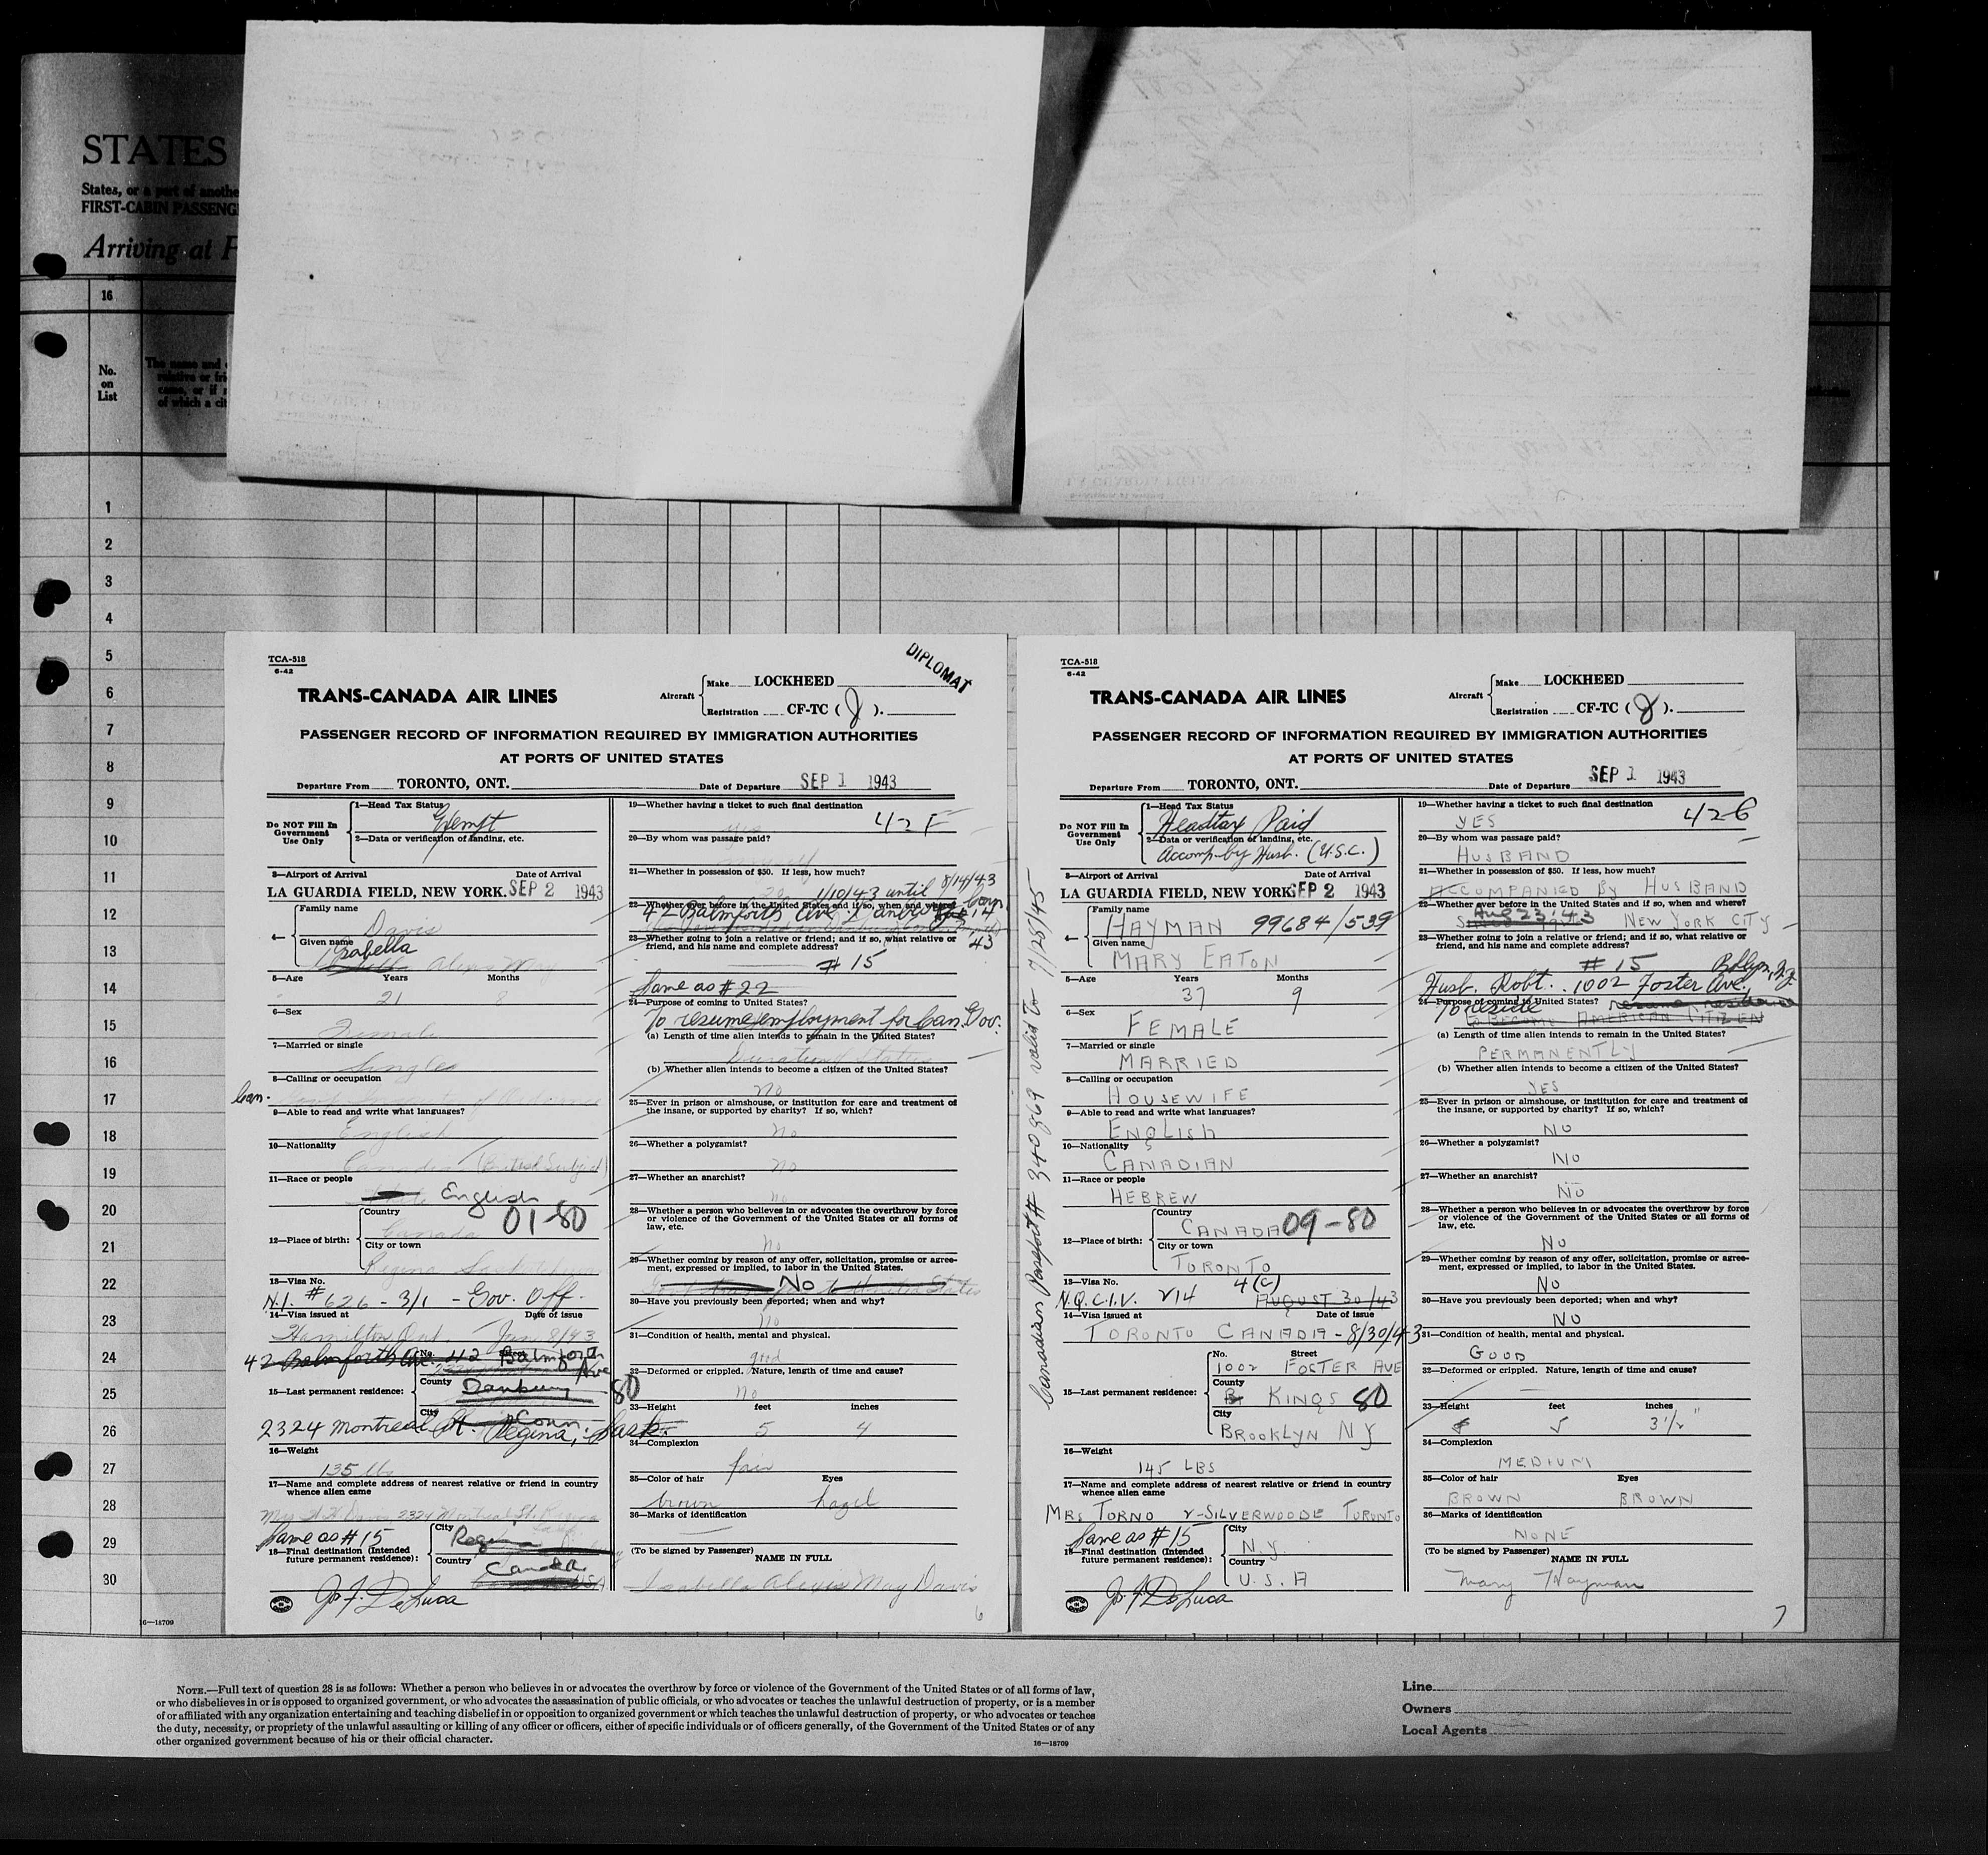 STATES
States, or a part of anothe
FIRST-CABIN PASSENG
Arriving at
16
No.
on
List
The name and
relative or fri
came, or if
of which a cit
1
2
3
4
5
6
7
8
9
10
11
12
13
14
15
16
17
18
19
20
21
22
23
24
25
26
27
28
29
30
16—18709
TCA-518
6-42
DIPLOMAT
TRANS-CANADA AIR LINES
Aircraft
Make LOCKHEED
Registration CF-TC ( J ).
PASSENGER RECORD OF INFORMATION REQUIRED BY IMMIGRATION AUTHORITIES
AT PORTS OF UNITED STATES
Departure From TORONTO, ONT. Date of Departure SEP 1 1943
Do NOT Fill In
Government
Use Only
1—Head Tax Status
Exempt
2—Data or verification of landing, etc.
3—Airport of Arrival Date of Arrival
LA GUARDIA FIELD, NEW YORK. SEP 2 1943
4—
Family name
Davis
Given name
Isabella
Alexis May
5—Age Years Months
21 8
6—Sex
Female
7—Married or single
Single
8—Calling or occupation
Can.
9—Able to read and write what languages?
English
10—Nationality
Canadian (British Subject)
11—Race or people
English
12—Place of birth:
Country
Canada 01-80
City or town
Regina Saskatchewan
13—Visa No.
N.I. #626 - 3/1 - Gov. Off.
14—Visa issued at Date of issue
Hamilton Ont. Jan 8/43
42 Balmforth Ave. No. 42 Balmforth Ave
15—Last permanent residence:
County
Danbury 80
City
Conn.
2324 Montreal St. Regina, Sask.
16—Weight
135 lbs
17—Name and complete address of nearest relative or friend in country
whence alien came
2324 Montreal St. Regina
Same as #15
18—Final destination (Intended
future permanent residence):
City
Regina
Country
Canada
USA
Jos. F. DeLuca
19—Whether having a ticket to such final destination
Yes 42F
20—By whom was passage paid?
myself
21—Whether in possession of $50. If less, how much?
1/10/43 until 8/14/43
22—Whether ever before in the United States and if so, when and where?
42 Balmforth Ave. Danbury Conn.
23—Whether going to join a relative or friend; and if so, what relative or
friend, and his name and complete address?
43
#15
Same as #22
24—Purpose of coming to United States?
To resume employment for Can. Gov.
(a) Length of time alien intends to remain in the United States?
Duration
(b) Whether alien intends to become a citizen of the United States?
No
25—Ever in prison or almshouse, or institution for care and treatment of
the insane, or supported by charity? If so, which?
No
26—Whether a polygamist?
No
27—Whether an anarchist?
No
28—Whether a person who believes in or advocates the overthrow by force
or violence of the Government of the United States or all forms of
law, etc.
No
29—Whether coming by reason of any offer, solicitation, promise or agree-
ment, expressed or implied, to labor in the United States.
No
30—Have you previously been deported; when and why?
No
31—Condition of health, mental and physical.
good
32—Deformed or crippled. Nature, length of time and cause?
no
33—Height feet inches
5 4
34—Complexion
fair
35—Color of hair Eyes
brown hazel
36—Marks of identification
(To be signed by Passenger)
NAME IN FULL
Isabella Alexis May Davis
6
TCA-518
6-42
TRANS-CANADA AIR LINES
Aircraft
Make LOCKHEED
Registration CF-TC ( J ).
PASSENGER RECORD OF INFORMATION REQUIRED BY IMMIGRATION AUTHORITIES
AT PORTS OF UNITED STATES
Departure From TORONTO, ONT. Date of Departure SEP 1 1943
Do NOT Fill In
Government
Use Only
1—Head Tax Status
Headtax Paid
2—Data or verification of landing, etc.
Accomp. by Husb. (U.S.C.)
3—Airport of Arrival Date of Arrival
LA GUARDIA FIELD, NEW YORK. SEP 2 1943
Canadian Passport # 340869 valid to 7/25/45
4—
Family name
HAYMAN 99684/539
Given name
MARY EATON
5—Age Years Months
37 9
6—Sex
FEMALE
7—Married or single
MARRIED
8—Calling or occupation
HOUSEWIFE
9—Able to read and write what languages?
ENGLISH
10—Nationality
CANADIAN
11—Race or people
HEBREW
12—Place of birth:
Country
CANADA 09-80
City or town
TORONTO
13—Visa No. 4(c)
N.Q.C.I.V. 214 AUGUST 30/43
14—Visa issued at Date of issue
TORONTO CANADA - 8/30/43
15—Last permanent residence:
No. Street
1002 FOSTER AVE
County
KINGS 80
City
BROOKLYN NY
16—Weight
145 LBS
17—Name and complete address of nearest relative or friend in country
whence alien came
MRS TORNO 2-SILVERWOODE TORONTO
Same as #15
18—Final destination (Intended
future permanent residence):
City
N.Y.
Country
U.S.A
Jos. F. DeLuca
19—Whether having a ticket to such final destination
YES 426
20—By whom was passage paid?
HUSBAND
21—Whether in possession of $50. If less, how much?
ACCOMPANIED BY HUSBAND
22—Whether ever before in the United States and if so, when and where?
Aug 23 '43 NEW YORK CITY
23—Whether going to join a relative or friend; and if so, what relative or
friend, and his name and complete address?
#15 Bklyn, N.Y.
Husb. Robt. 1002 Foster Ave.
24—Purpose of coming to United States? resume residence
To reside
TO BECOME AMERICAN CITIZEN
(a) Length of time alien intends to remain in the United States?
PERMANENTLY
(b) Whether alien intends to become a citizen of the United States?
YES
25—Ever in prison or almshouse, or institution for care and treatment of
the insane, or supported by charity? If so, which?
NO
26—Whether a polygamist?
NO
27—Whether an anarchist?
NO
28—Whether a person who believes in or advocates the overthrow by force
or violence of the Government of the United States or all forms of
law, etc.
NO
29—Whether coming by reason of any offer, solicitation, promise or agree-
ment, expressed or implied, to labor in the United States.
NO
30—Have you previously been deported; when and why?
NO
31—Condition of health, mental and physical.
GOOD
32—Deformed or crippled. Nature, length of time and cause?
33—Height feet inches
5 3 1/2"
34—Complexion
MEDIUM
35—Color of hair Eyes
BROWN BROWN
36—Marks of identification
NONE
(To be signed by Passenger)
NAME IN FULL
Mary Hayman
7
NOTE.—Full text of question 28 is as follows: Whether a person who believes in or advocates the overthrow by force or violence of the Government of the United States or of all forms of law,
or who disbelieves in or is opposed to organized government, or who advocates the assassination of public officials, or who advocates or teaches the unlawful destruction of property, or is a member
of or affiliated with any organization entertaining and teaching disbelief in or opposition to organized government or which teaches the unlawful destruction of property, or who advocates or teaches
the duty, necessity, or propriety of the unlawful assaulting or killing of any officer or officers, either of specific individuals or of officers generally, of the Government of the United States or of any
other organized government because of his or their official character.
16—18709
Line
Owners
Local Agents